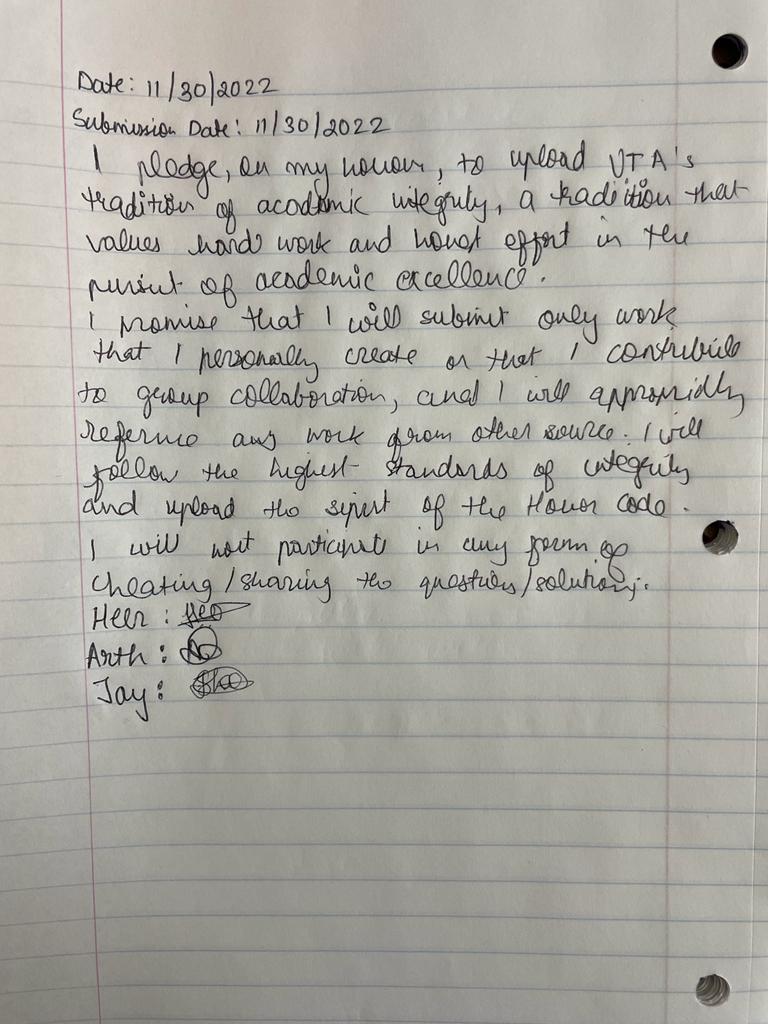 Date: 11/30/2022
Submission Date: 11/30/2022
I pledge, on my honour, to upload UTA's
tradition of academic integrity, a tradition that
values hard work and honest effort in the
pursuit of academic excellence.
I promise that I will submit only work
that I personally create or that I contribute
to group collaboration, and I will appropriatly
reference any work from other source. I will
follow the highest standards of integrity
and upload the spirit of the Honor Code.
I will not participate in any form of
cheating/sharing the questions/solutions.
Heer :
Arth :
Jay :